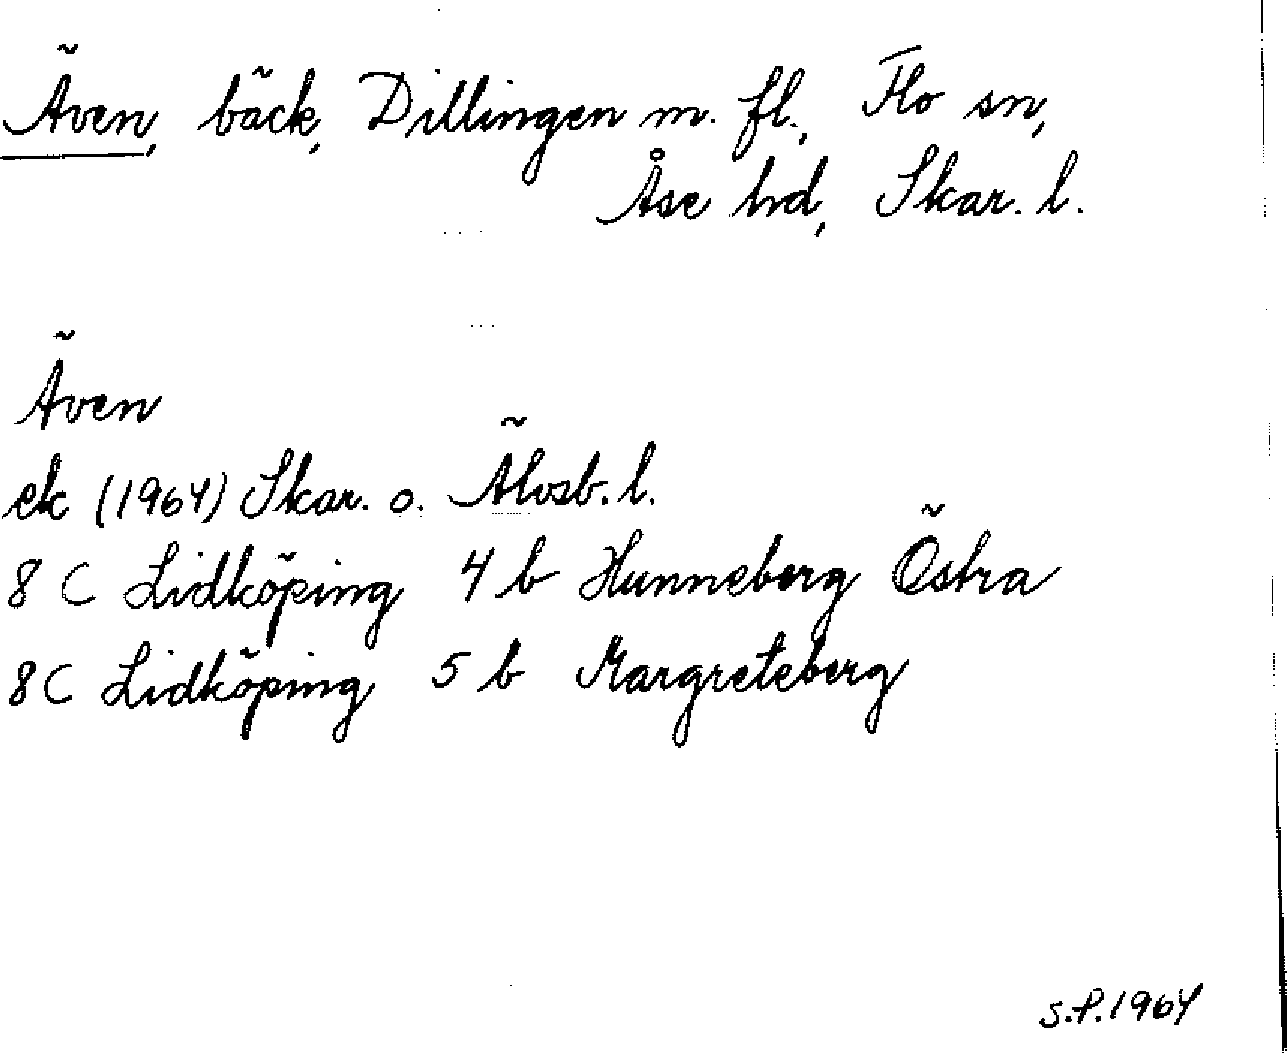 Även, bäck, Dillingen m. fl., Flo sn,
Åse hd, Skar. l.
Även
ek (1964) Skar. o. Älvsb. l.
8 C Lidköping 4 b Hunneberg Östra
8 C Lidköping 5 b Margreteberg
S.P. 1964